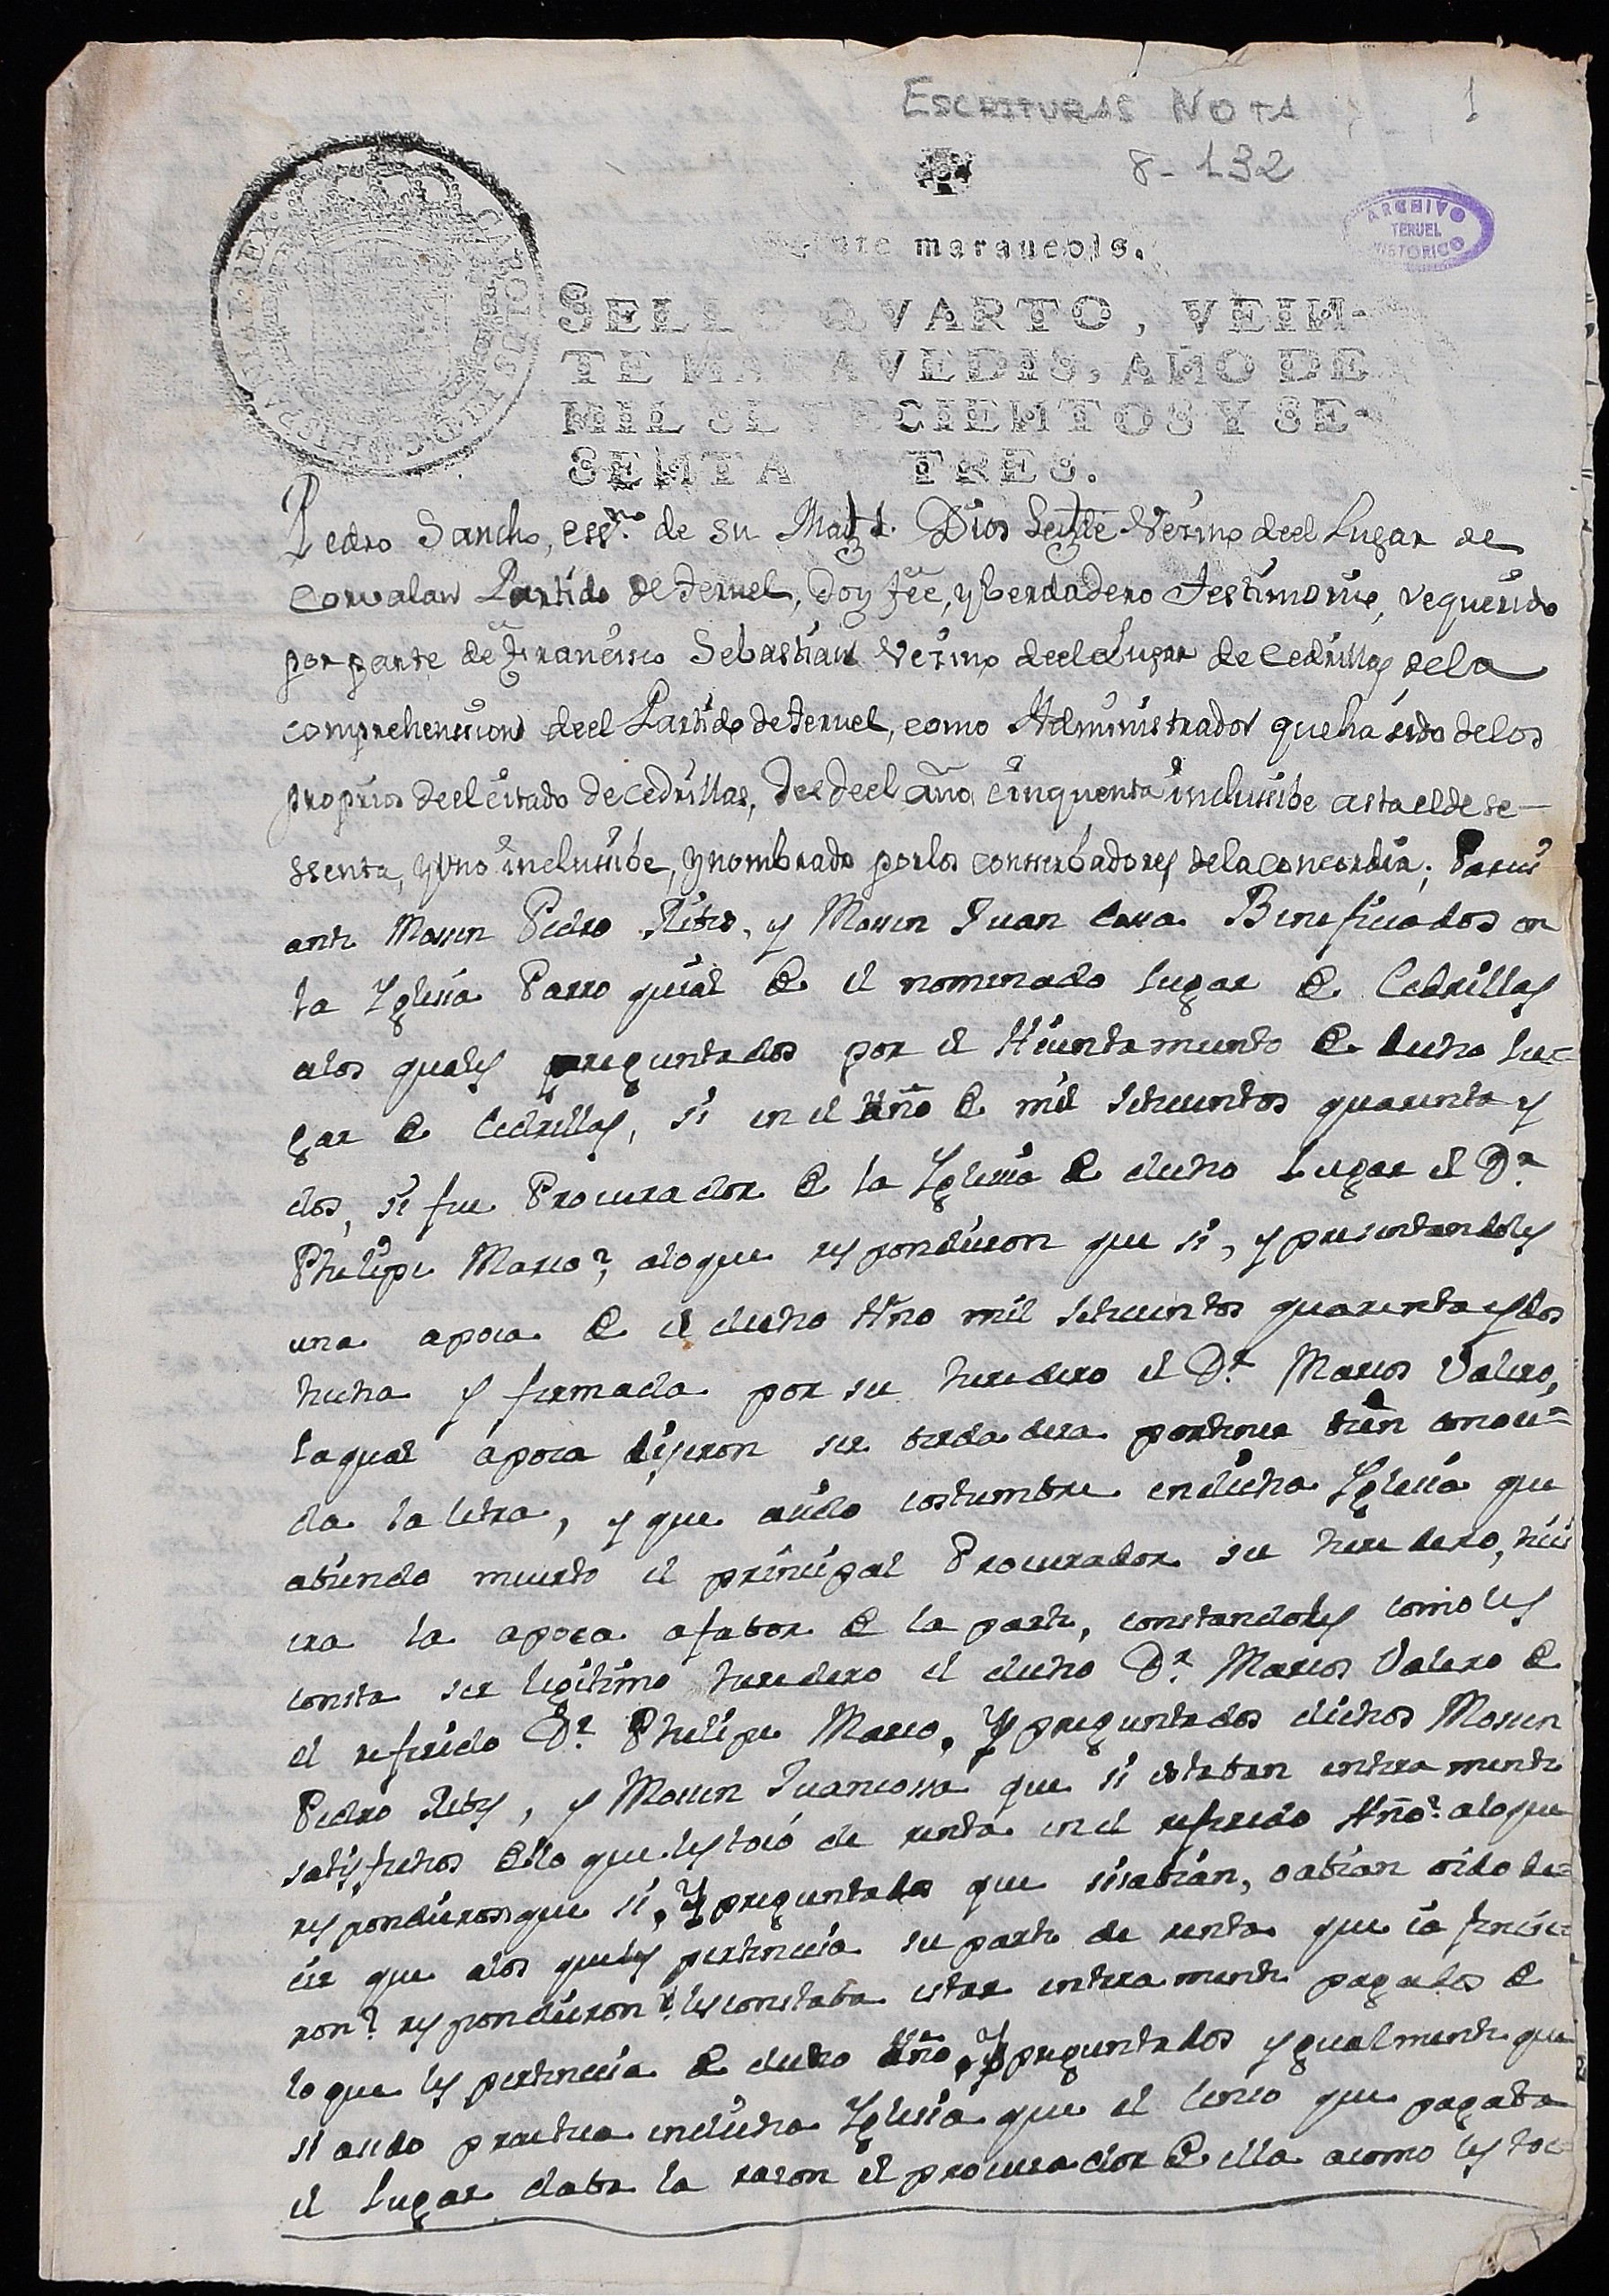 ESCRITURAS NOTA
1
8-132
ARCHIVO
TERUEL
HISTORICO
maravedis.
SELLO QVARTO, VEIN-
TE MARAVEDIS, AÑO DE
MIL SETECIENTOS Y SE-
SENTA Y TRES.
Pedro Sancho, essno. de su Magd. Dios legde Vezino deel Lugar de
Corvalan Partido de Teruel, doy feé, y berdadero testimonio, requerido
por parte de Francisco Sebastian Vezino deel Lugar de Cedrillas dela
comprehension deel Partido de Teruel, como Administrador que há sido delos
proprios deel citado de Cedrillas, desdeel año cinquenta inclusibe asta el de se-
ssenta, y uno inclusibe, y nombrado por los conserbadores dela concordia;
ante Mosen Pedro y Mosen Juan Beneficiados en
la Iglesia Parroquial de el nomenado lugar de Cedrillas
alos quales preguntados por el Aiuntamiento de dicho lu=
gar de Cedrillas, si en el Año de mil setecientos quarenta y
dos, si fue Procurador de la Iglesia de dicho Lugar el Dr.
Phelipe Marco?, aloque respondieron que si, y presentandoles
una apoca de el dicho Año mil setecientos quarenta y dos
hecha y firmada por su heredero el Dr. Marcos Valero,
laqual apoca dijeron ser berdadera por tener bien conoci=
da la letra, y que asido costumbre en dicha Iglesia que
abiendo muerto el principal Procurador su heredero, hici
era la apoca afabor de la parte, constandoles como les
consta ser legitimo heredero el dicho Dr. Marcos Valero de
el referido Dr. Phelipe Marco. Y preguntados dichos Mosen
Pedro , y Mosen Juan que si estaban entera mente
satisfechos de lo que les tocó de renta en el referido Año? aloque
respondieron que si, Y preguntados que si sabian, o abian oido de=
cir que alos quales pertenecia su parte de renta que
ron? respondieron les constaba estar entera mente pagados de
lo que les pertenecia de dicho Año, Y preguntados ygualmente que
si asido practica en dicha Iglesia que el que pagaba
el Lugar daba la rason el procurador de ella acomo les toc=